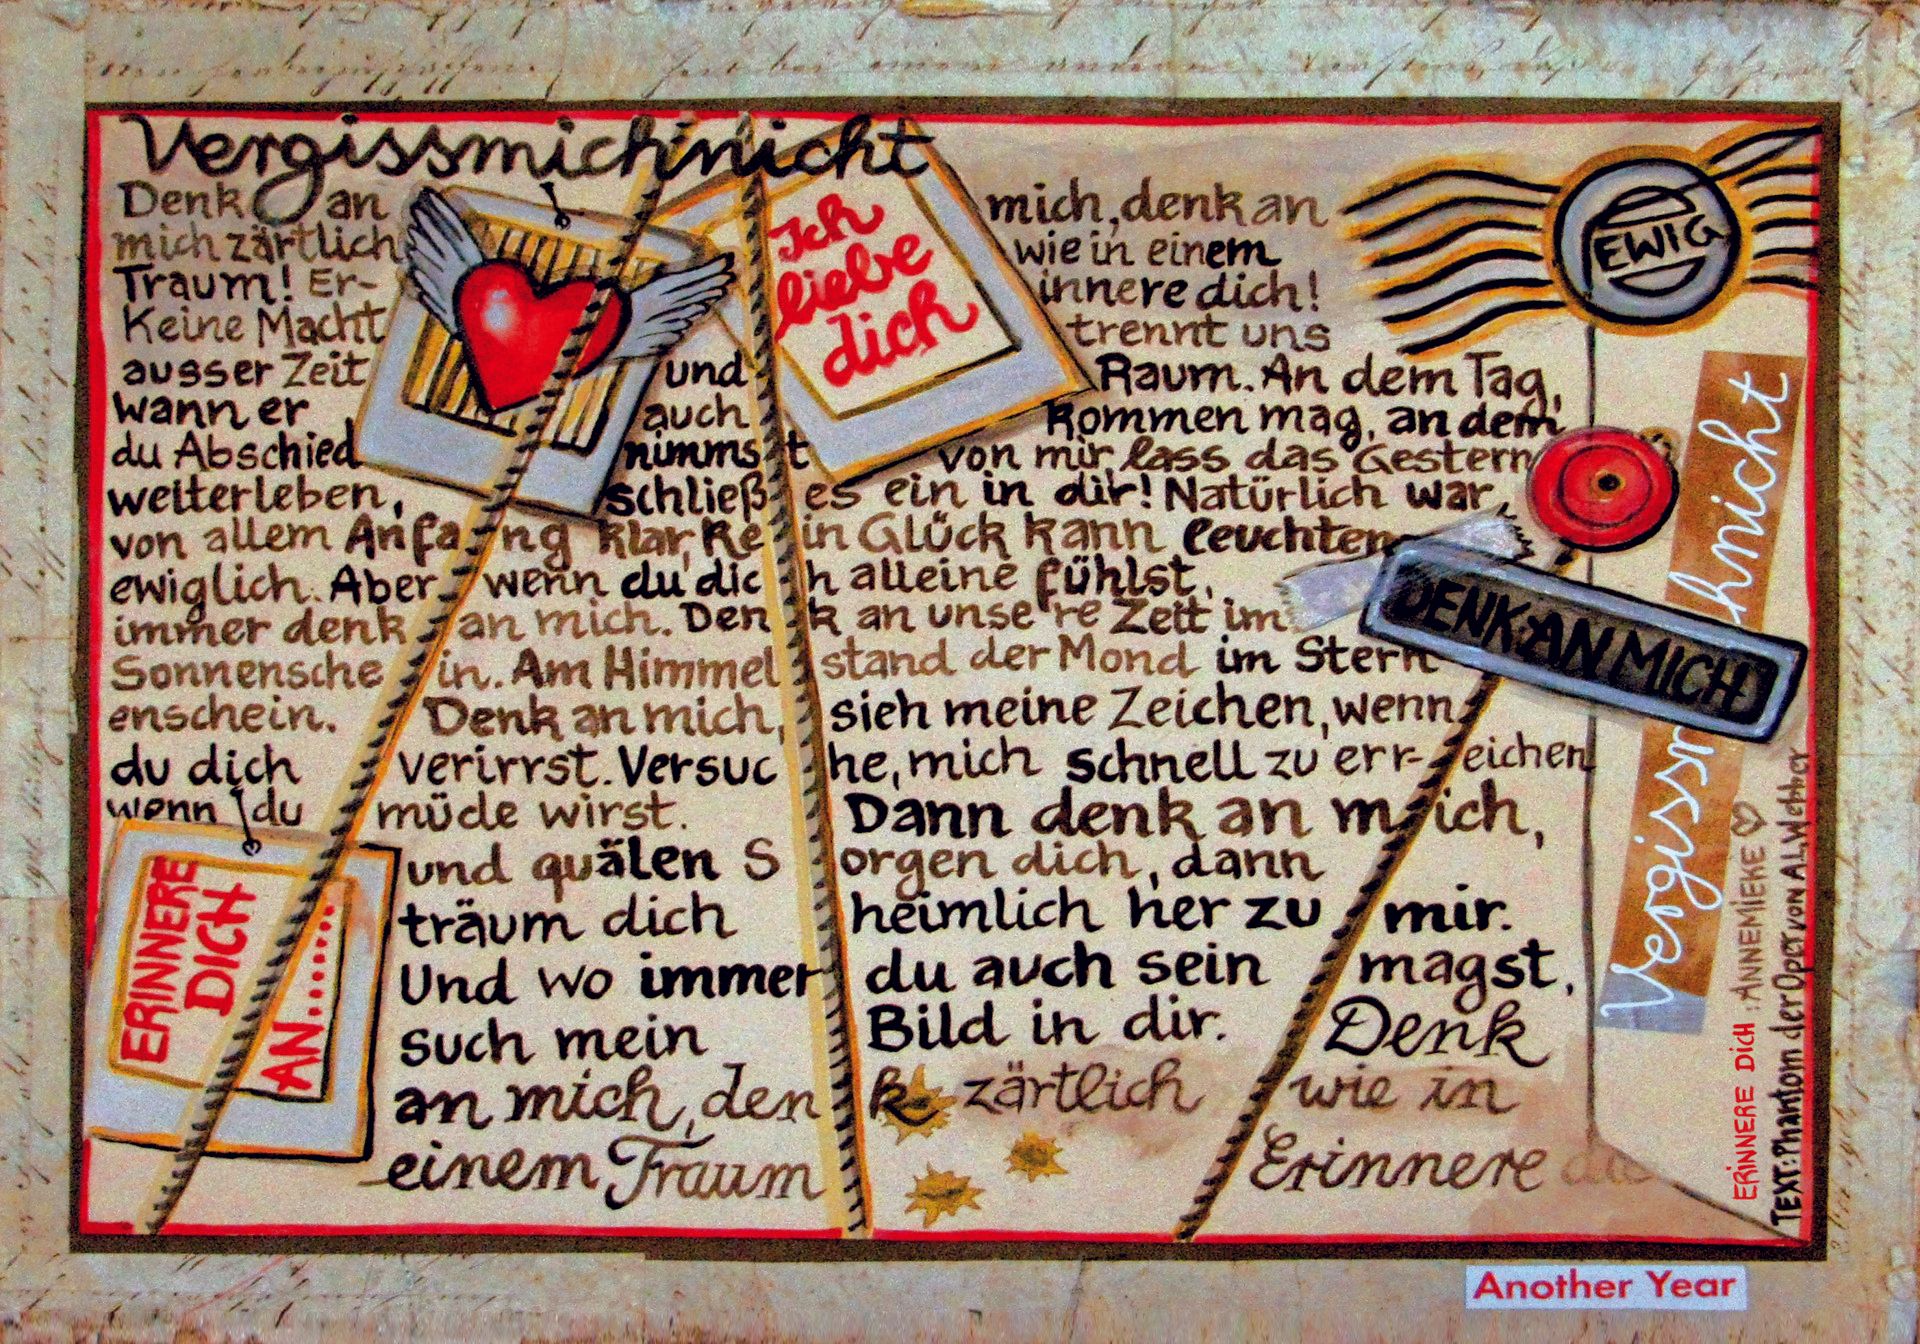 Vergissmichnicht
Denk an mich, denk an
mich zärtlich wie in einem
Traum! Er- innere dich!
Keine Macht trennt uns
ausser Zeit und Raum. An dem Tag,
wann er auch kommen mag, an dem
du Abschied nimmst von mir, lass das Gestern
weiterleben, schließ es ein in dir! Natürlich war,
von allem Anfang klar, Kein Glück kann leuchten
ewiglich. Aber wenn du dich alleine fühlst,
immer denk an mich. Denk an unsere Zeit im
Sonnenschein. Am Himmel stand der Mond im Stern
enschein. Denk an mich, sieh meine Zeichen, wenn
du dich verirrst. Versuche, mich schnell zu err-eichen
wenn du müde wirst. Dann denk an mich,
und quälen Sorgen dich, dann
träum dich heimlich her zu mir.
Und wo immer du auch sein magst,
such mein Bild in dir. Denk
an mich, denk zärtlich wie in
einem Traum Erinnere die
Ich
liebe
dich
EWIG
DENK AN MICH
Vergissm hnicht
ERINNERE
DICH
AN.......
ERINNERE DICH : ANNEMIEKE
TEXT: Phantom der Oper von A.L.Webber
Another Year